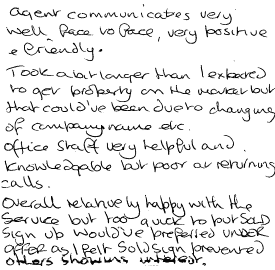 agent communicates very
well, face to face, very positive
e friendly.
Took a lot longer than I expected
to get property on the market but
that could've been due to changing
of company name etc.
office staff very helpful and
knowledgable but poor at returning
calls.
Overall relatively happy with the
service but too quick to put SOLD
Sign up would've preferred UNDER
offer as I felt Sold sign prevented
others showing interest.